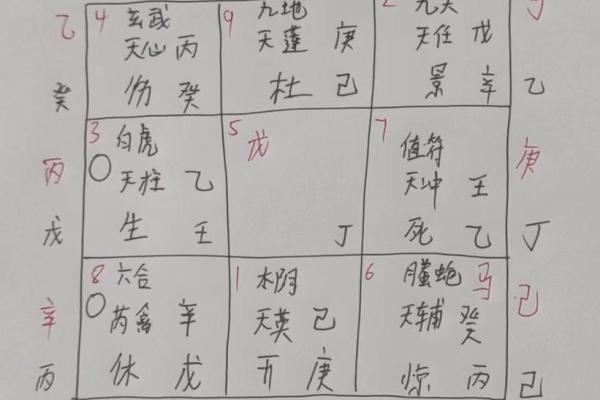 乙 4 玄武 9 九地 2 九天 丁
天心 丙 天蓬 庚 天任 戊
癸 伤 癸 杜 己 景 辛 乙
3 白虎 5 戊 7 值符
丙 天柱 乙 天冲 壬 庚
戊 生 壬 丁 死 乙 丁
8 六合 1 太阴 6 螣蛇 马
辛 芮禽 辛 天英 己 天辅 癸 己
丙 休 戊 开 庚 惊 丙 己